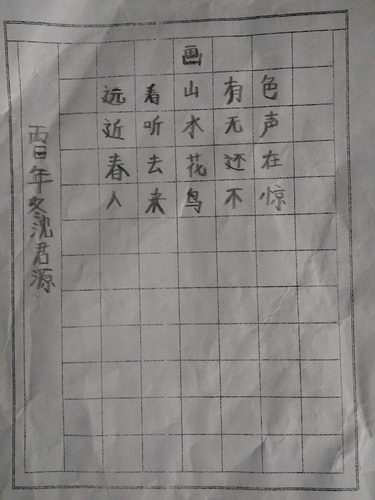 画
远看山有色
近听水无声
春去花还在
人来鸟不惊
丙申年冬沈君源